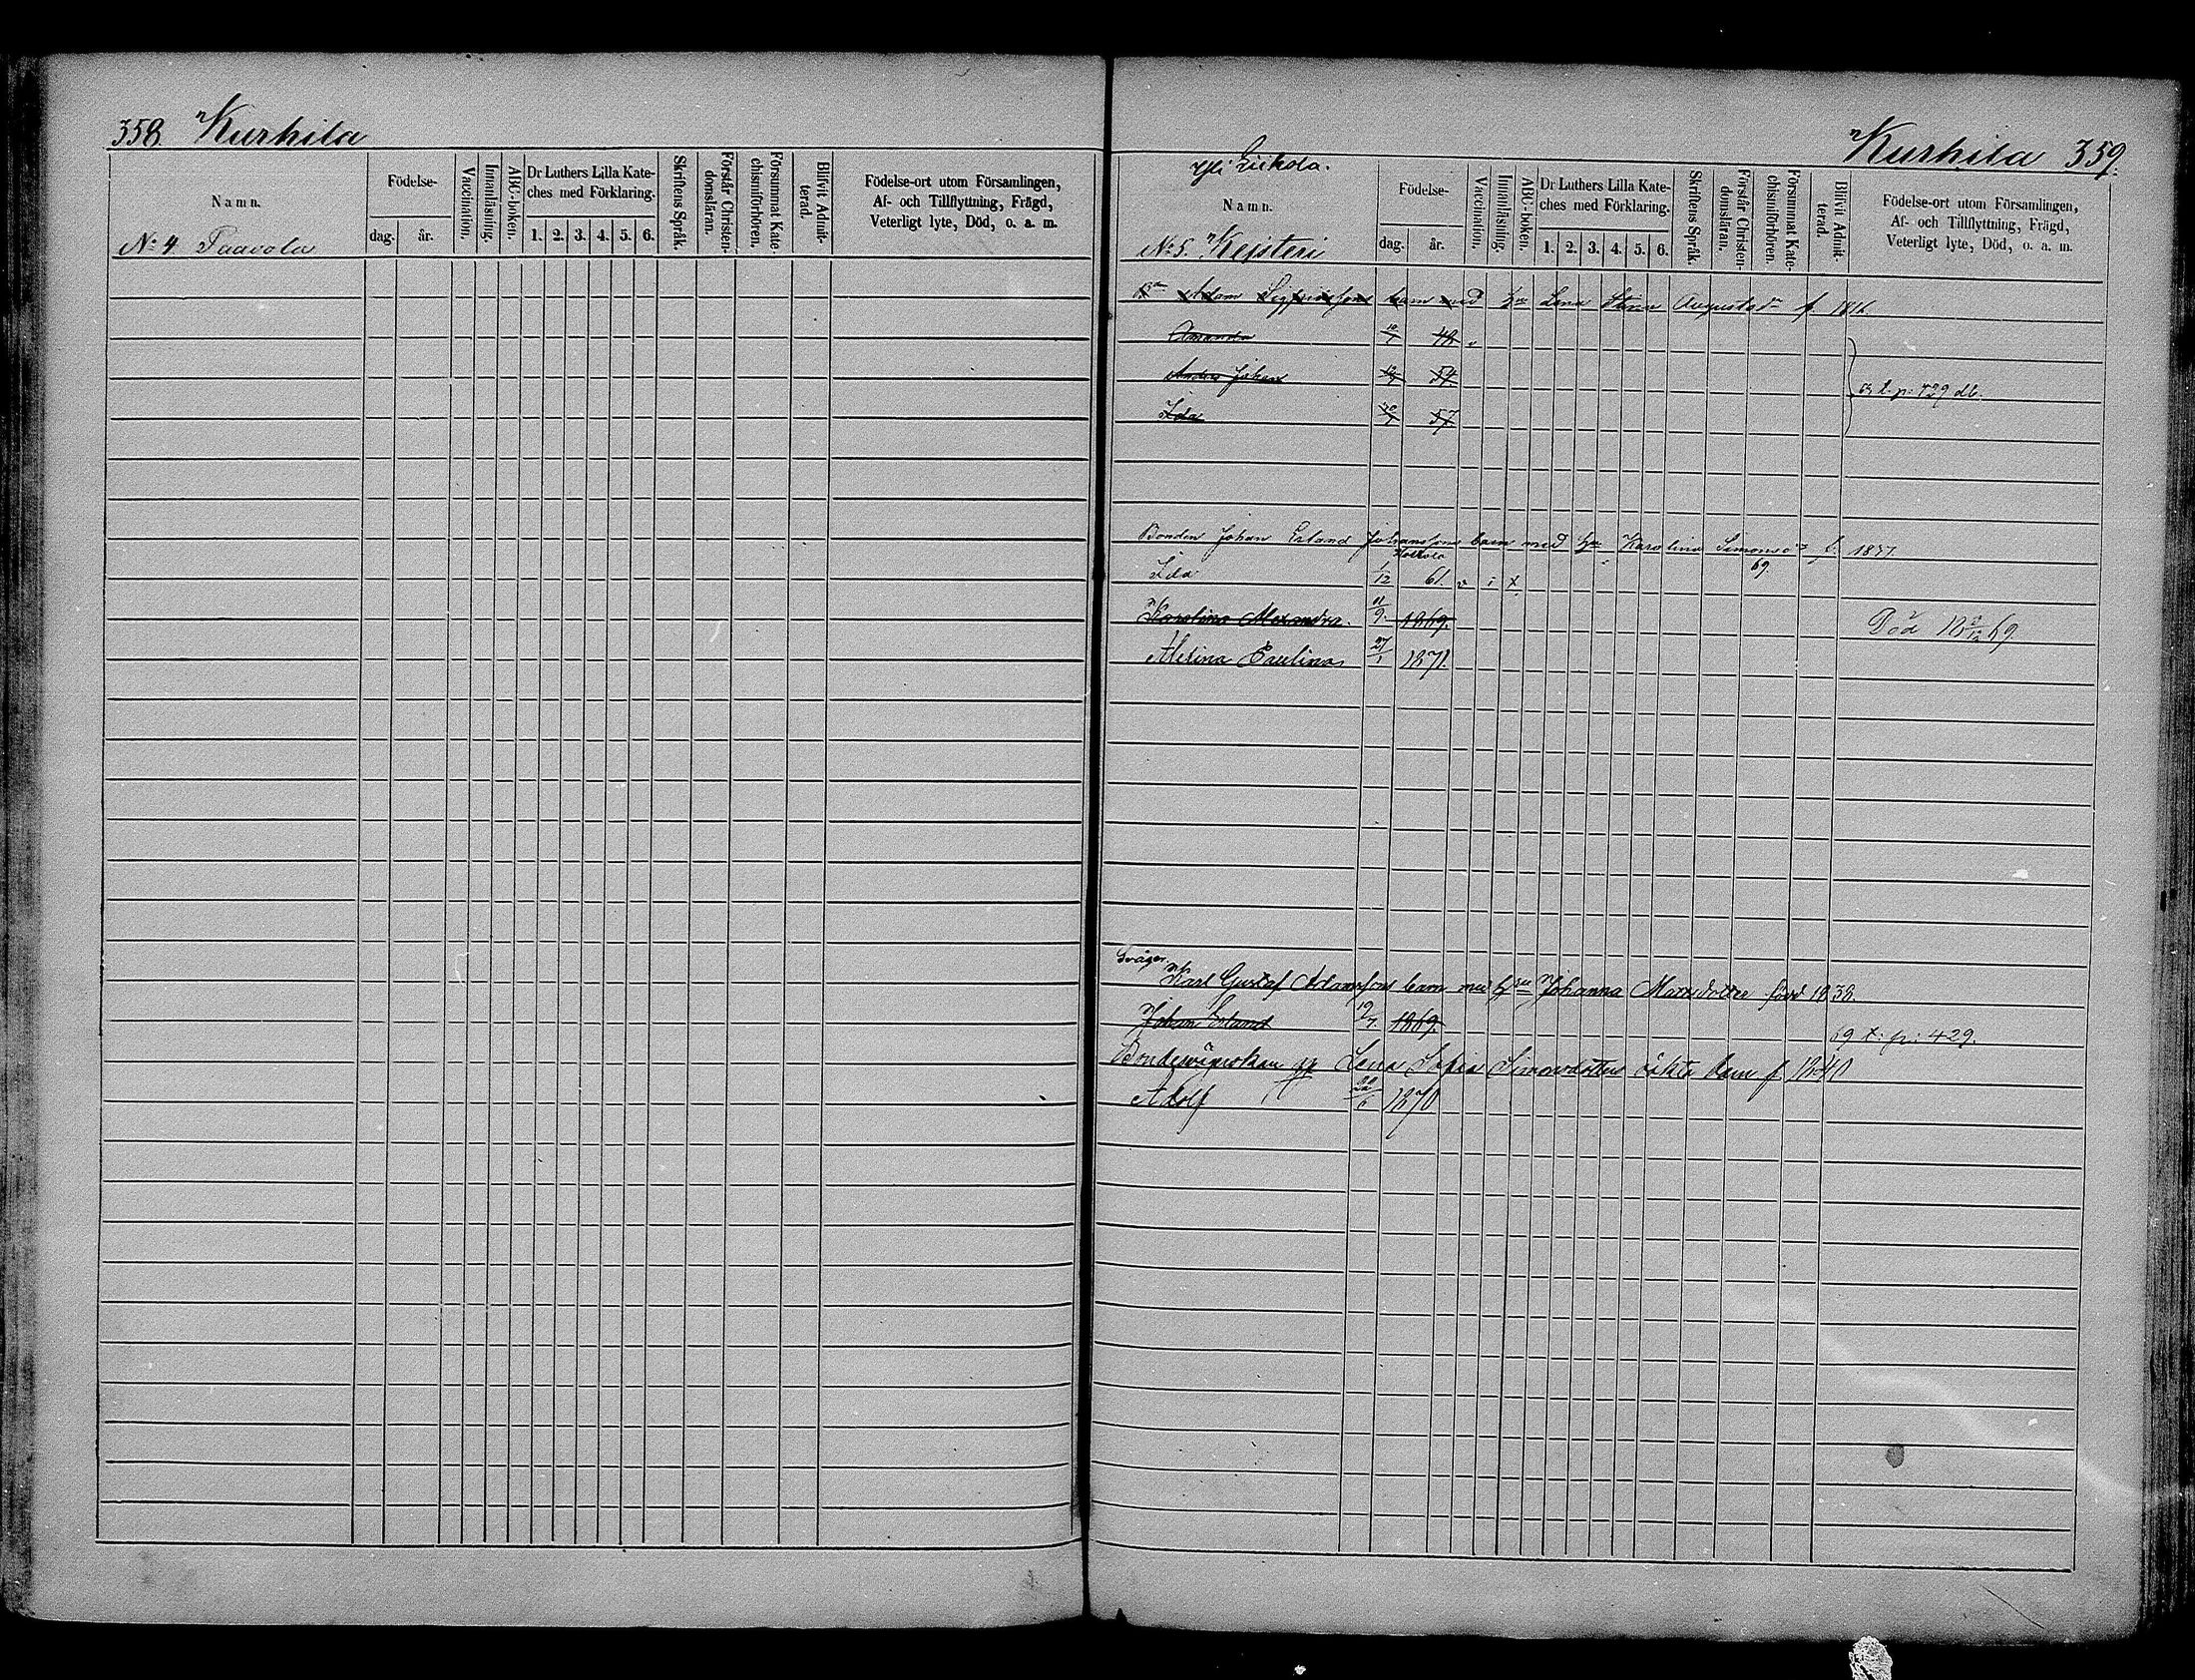 358. Kurhila
Namn.
Födelse-
dag.
år.
Vaccination.
Innanläsning.
ABC-boken.
Dr Luthers Lilla Kate-
ches med Förklaring.
1. 2. 3. 4. 5. 6.
Skriftens Språk.
Förstår Christen-
domsläran.
Försummat Kate-
chismiförhören.
Blifvit Admit-
terad.
Födelse-ort utom Församlingen,
Af- och Tillflyttning, Frägd,
Veterligt lyte, Död, o. a. m.
No 4 Taavola
Kurhila 359.
Namn.
Födelse-
dag.
år.
Vaccination.
Innanläsning.
ABC-boken.
Dr Luthers Lilla Kate-
ches med Förklaring.
1. 2. 3. 4. 5. 6.
Skriftens Språk.
Förstår Christen-
domsläran.
Försummat Kate-
chismiförhören.
Blifvit Admit-
terad.
Födelse-ort utom Församlingen,
Af- och Tillflyttning, Frägd,
Veterligt lyte, Död, o. a. m.
No 5. Kejsteri
Bn Adam Sigfridssons barn med Hu Lena Stina Augustsdr f. 1816
Amanda 10/7 48
Anders Johan 54
Ida 57
t. p. 429
Bonden Johan Erland Johanssons barn med Hu Karolina Simonsdr f. 1837
Hollola 69.
Ida 1/12 61. v i x
Karolina Alexandra. 11/9. 1869. Död 18 12 69
Alexina Paulina 27/1 1871.
Svåger
Karl Gustaf Adamssons barn med Hstru Johanna Mattsdotter född 1838.
Johan Erland 19/7. 1869. 69 t: p: 429.
Bondesvägerskan Lena Sofia Simonsdotters oäkta barn f 1840
Adolf 22/6 1870